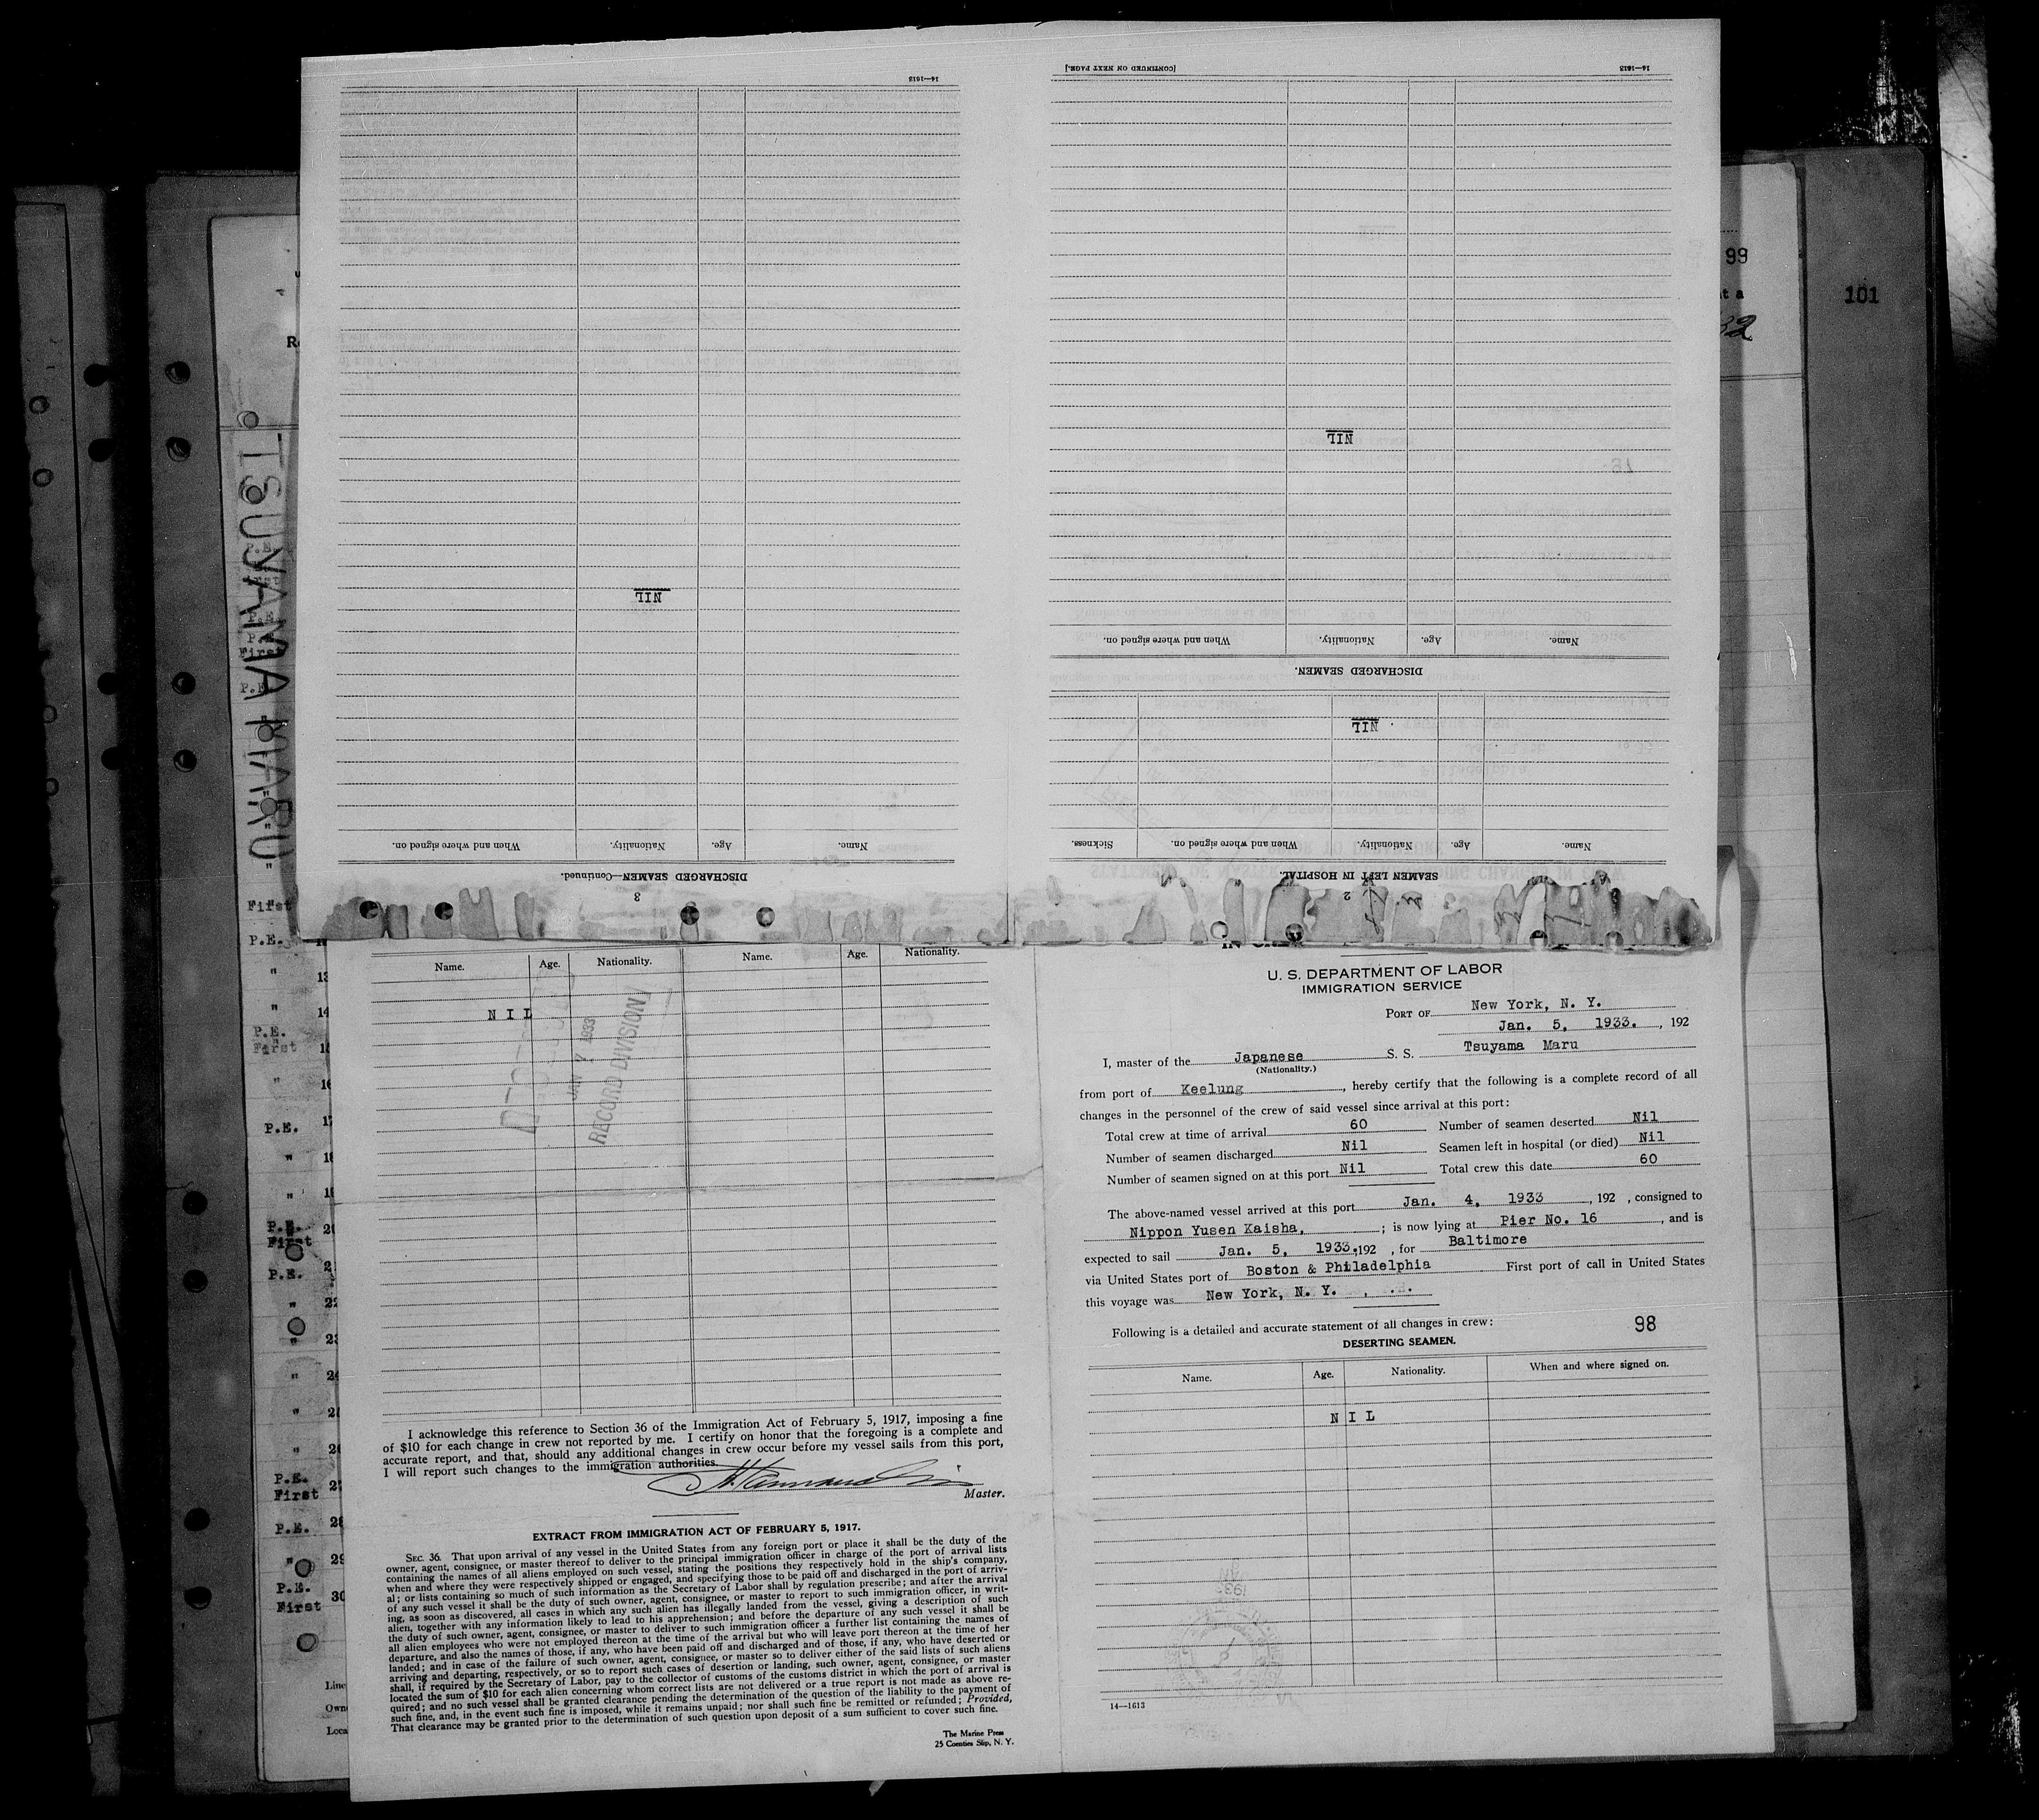 14—1613
[CONTINUED ON NEXT PAGE.]
14—1613
99
101
t a
32
R
TSUYAMA MARU
NIL
NIL
When and where signed on.
Nationality.
Age.
Name.
DISCHARGED SEAMEN.
NIL
When and where signed on.
Nationality.
Age.
Name.
DISCHARGED SEAMEN—Continued.
3
Sickness.
When and where signed on.
Nationality.
Age.
Name.
SEAMEN LEFT IN HOSPITAL.
2
Name.
Age.
Nationality.
Name.
Age.
Nationality.
N I L
JAN 7 1933
RECORD DIVISION
I acknowledge this reference to Section 36 of the Immigration Act of February 5, 1917, imposing a fine
of $10 for each change in crew not reported by me. I certify on honor that the foregoing is a complete and
accurate report, and that, should any additional changes in crew occur before my vessel sails from this port,
I will report such changes to the immigration authorities.
Master.
EXTRACT FROM IMMIGRATION ACT OF FEBRUARY 5, 1917.
SEC. 36. That upon arrival of any vessel in the United States from any foreign port or place it shall be the duty of the
owner, agent, consignee, or master thereof to deliver to the principal immigration officer in charge of the port of arrival lists
containing the names of all aliens employed on such vessel, stating the positions they respectively hold in the ship's company,
when and where they were respectively shipped or engaged, and specifying those to be paid off and discharged in the port of arriv-
al; or lists containing so much of such information as the Secretary of Labor shall by regulation prescribe; and after the arrival
of any such vessel it shall be the duty of such owner, agent, consignee, or master to report to such immigration officer, in writ-
ing, as soon as discovered, all cases in which any such alien has illegally landed from the vessel, giving a description of such
alien, together with any information likely to lead to his apprehension; and before the departure of any such vessel it shall be
the duty of such owner, agent, consignee, or master to deliver to such immigration officer a further list containing the names of
all alien employees who were not employed thereon at the time of the arrival but who will leave port thereon at the time of her
departure, and also the names of those, if any, who have been paid off and discharged and of those, if any, who have deserted or
landed; and in case of the failure of such owner, agent, consignee, or master so to deliver either of the said lists of such aliens
arriving and departing, respectively, or so to report such cases of desertion or landing, such owner, agent, consignee, or master
shall, if required by the Secretary of Labor, pay to the collector of customs of the customs district in which the port of arrival is
located the sum of $10 for each alien concerning whom correct lists are not delivered or a true report is not made as above re-
quired; and no such vessel shall be granted clearance pending the determination of the question of the liability to the payment of
such fine, and, in the event such fine is imposed, while it remains unpaid; nor shall such fine be remitted or refunded; Provided,
That clearance may be granted prior to the determination of such question upon deposit of a sum sufficient to cover such fine.
The Marine Press
25 Coenties Slip, N. Y.
U. S. DEPARTMENT OF LABOR
IMMIGRATION SERVICE
PORT OF New York, N. Y.
Jan. 5, 1933. , 192
I, master of the Japanese S. S. Tsuyama Maru
(Nationality.)
from port of Keelung , hereby certify that the following is a complete record of all
changes in the personnel of the crew of said vessel since arrival at this port:
Total crew at time of arrival 60 Number of seamen deserted Nil
Number of seamen discharged Nil Seamen left in hospital (or died) Nil
Number of seamen signed on at this port Nil Total crew this date 60
The above-named vessel arrived at this port Jan. 4, 1933 , 192 , consigned to
Nippon Yusen Kaisha, ; is now lying at Pier No. 16 , and is
expected to sail Jan. 5, 1933. ,192 , for Baltimore
via United States port of Boston & Philadelphia First port of call in United States
this voyage was New York, N. Y.
Following is a detailed and accurate statement of all changes in crew: 98
DESERTING SEAMEN.
Name.
Age.
Nationality.
When and where signed on.
N I L
14—1613
First
P.E.
P.E.
First
P.E.
P.E.
First
P.E.
P.E.
First
P.E.
P.E.
First
Line
Owne
Loca